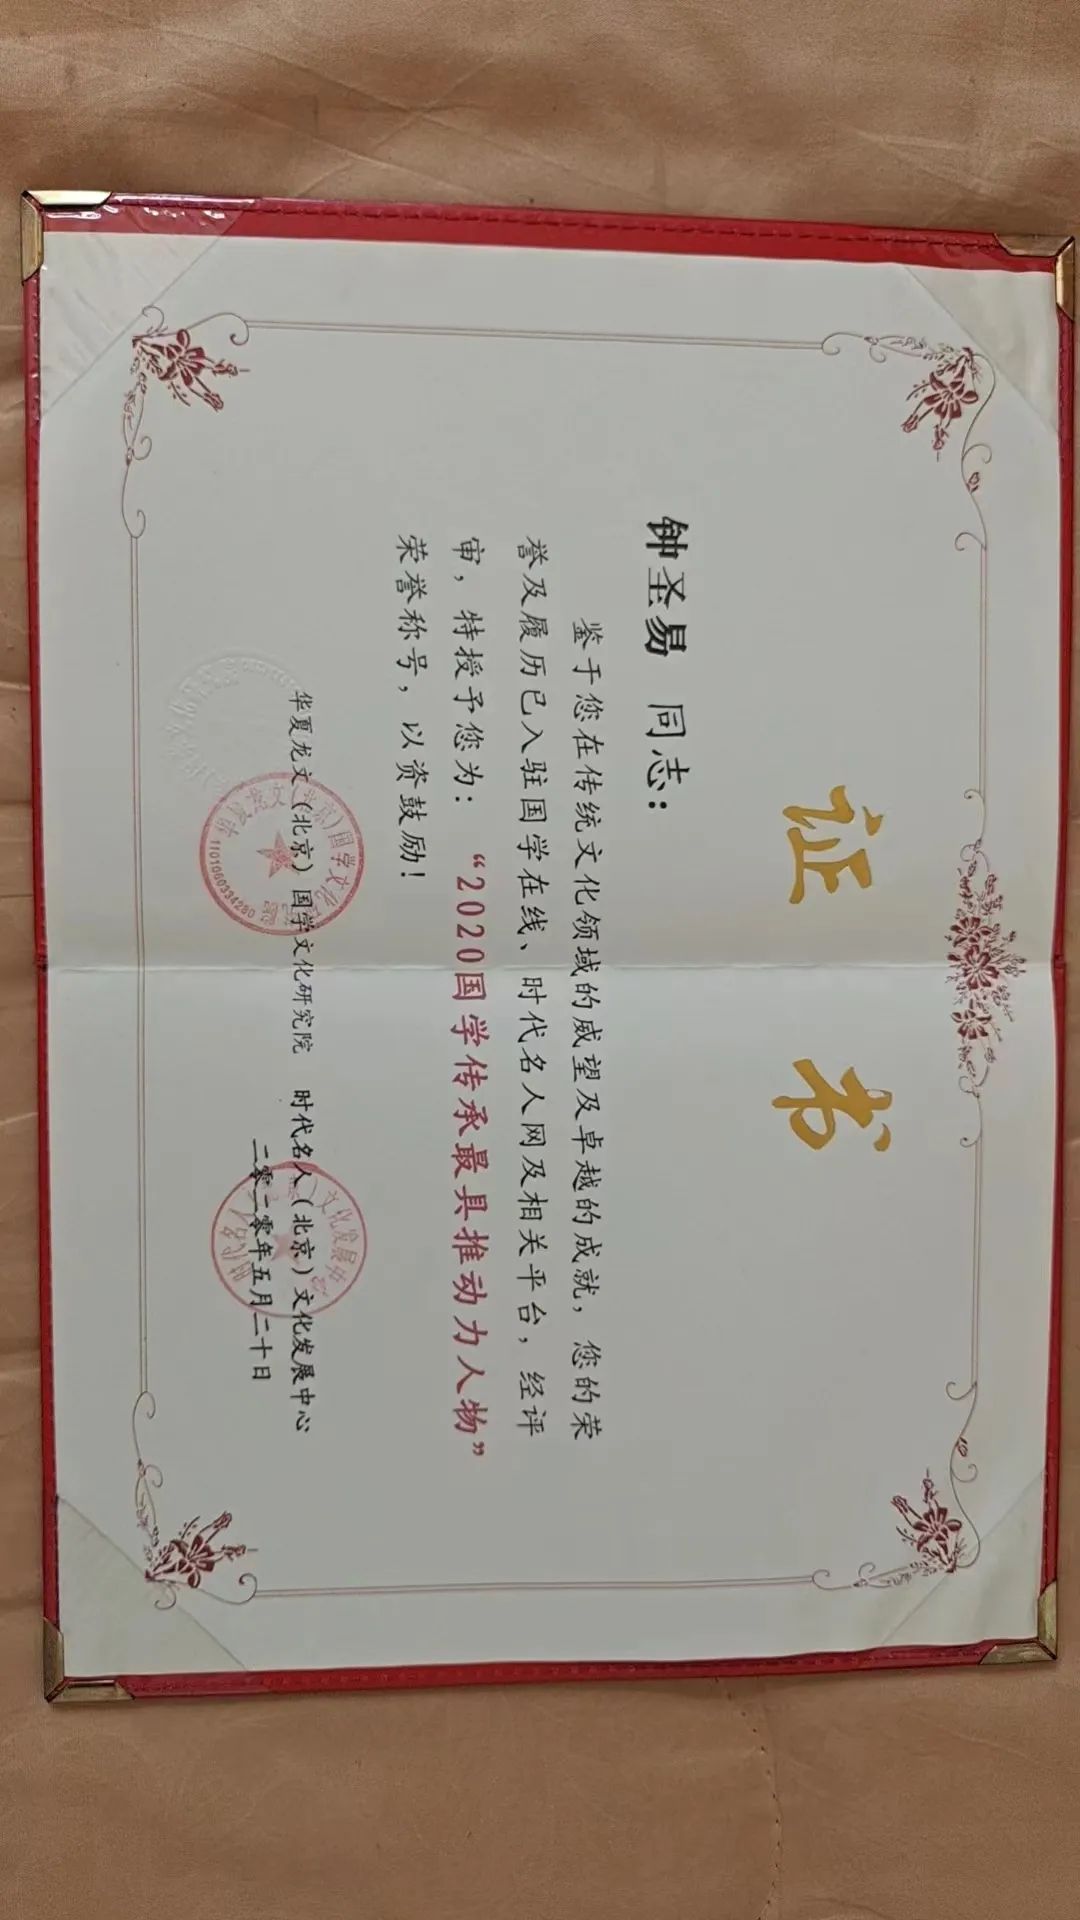 证 书
钟圣易 同志：
鉴于您在传统文化领域的威望及卓越的成就，您的荣
誉及履历已入驻国学在线、时代名人网及相关平台，经评
审，特授予您为：“2020国学传承最具推动力人物”
荣誉称号，以资鼓励！
华夏龙文（北京）国学文化研究院 时代名人（北京）文化发展中心
二零二零年五月二十日
华夏龙文（北京）国学文化
1101060334280
文化发展